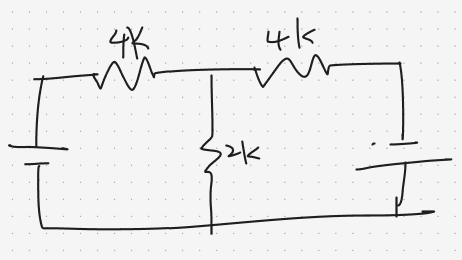 4K
4K
2K